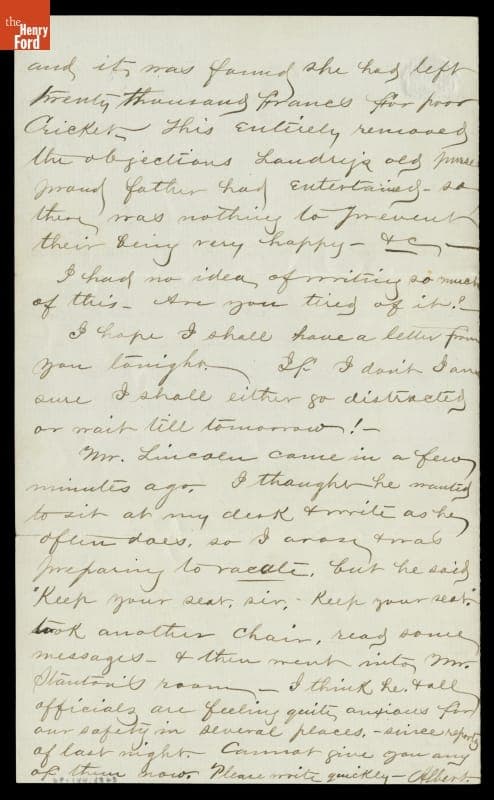 the
Henry
Ford
and it was found she had left
twenty thousand francs for poor
Cricket. This entirely removed
the objections Landry's old purse
proud father had entertained - so
there was nothing to prevent
their being very happy - &c, -
I had no idea of writing so much
of this - Are you tired of it? -
I hope I shall have a letter from
you tonight. If I don't I am
sure I shall either go distracted
or wait till tomorrow! -
Mr. Lincoln came in a few
minutes ago. I thought he wanted
to sit at my desk & write as he
often does, so I arose & was
preparing to vacate, but he said
"Keep your seat, sir, - Keep your seat."
took another chair, read some
messages - & then went into Mr.
Stanton's room - I think he & all
officials are feeling quite anxious for
our safety in several places, - since reports
of last night. Cannot give you any
of them now. Please write quickly - Albert.